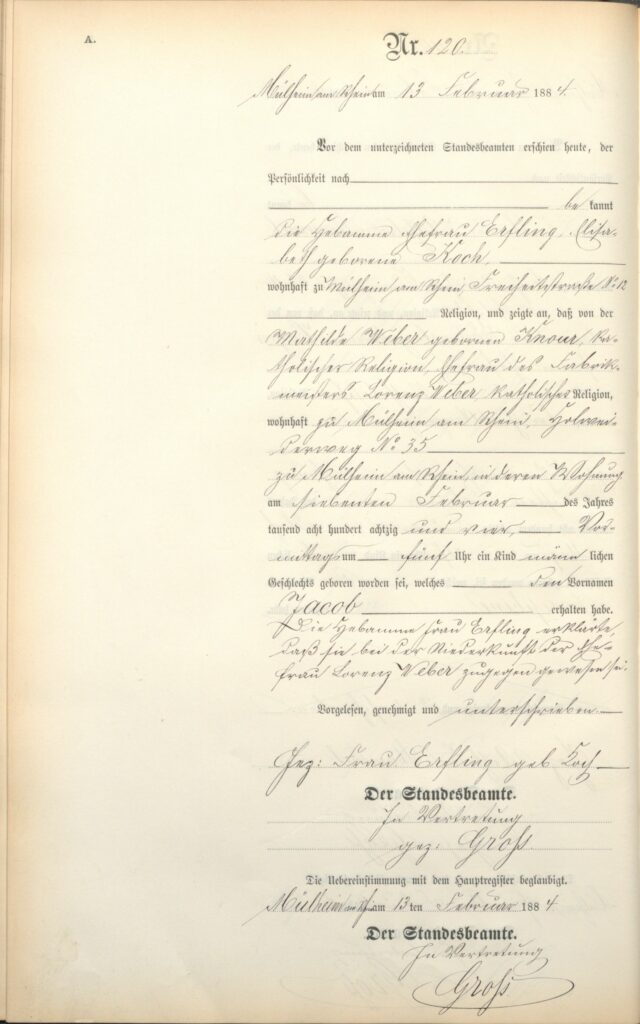 A.
Nr. 120.
Mülheim am Rhein am 13 Februar 1884.
Vor dem unterzeichneten Standesbeamten erschien heute, der
Persönlichkeit nach
be kannt
die Hebamme Ehefrau Erfling, Elisa-
beth geborene Koch,
wohnhaft zu Mülheim am Rhein, Freiheitstraße No 12
Religion, und zeigte an, daß von der
Mathilde Weber gebornen Knour, ka-
tholischer Religion, Ehefrau des Fabrik-
meisters Lorenz Weber, katholischer Religion,
wohnhaft zu Mülheim am Rhein, Holwei-
derweg No 35
zu Mülheim am Rhein, in deren Wohnung
am siebenten Februar des Jahres
tausend acht hundert achtzig und vier, Vor-
mittags um fünf Uhr ein Kind männ lichen
Geschlechts geboren worden sei, welches den Vornamen
Jacob erhalten habe.
Die Hebamme Frau Erfling erklärte,
daß sie bei der Niederkunft der Ehe-
frau Lorenz Weber zugegen gewesen sei.
Vorgelesen, genehmigt und unterschrieben.
Gez: Frau Erfling geb Koch
Der Standesbeamte.
In Vertretung
gez: Groß.
Die Uebereinstimmung mit dem Hauptregister beglaubigt.
Mülheim am Rh am 13 ten Februar 1884
Der Standesbeamte.
In Vertretung
Groß